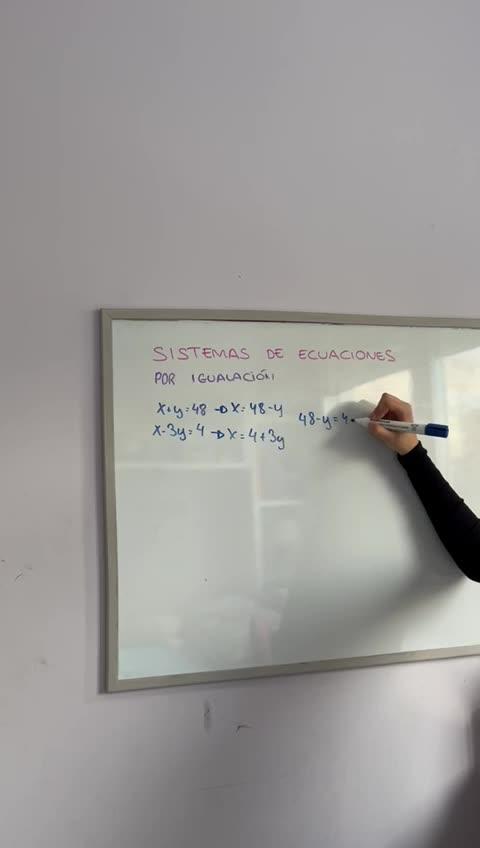 SISTEMAS DE ECUACIONES
POR IGUALACIÓN
x+y=48 → x=48-y
x-3y=4 → x=4+3y
48-y=4